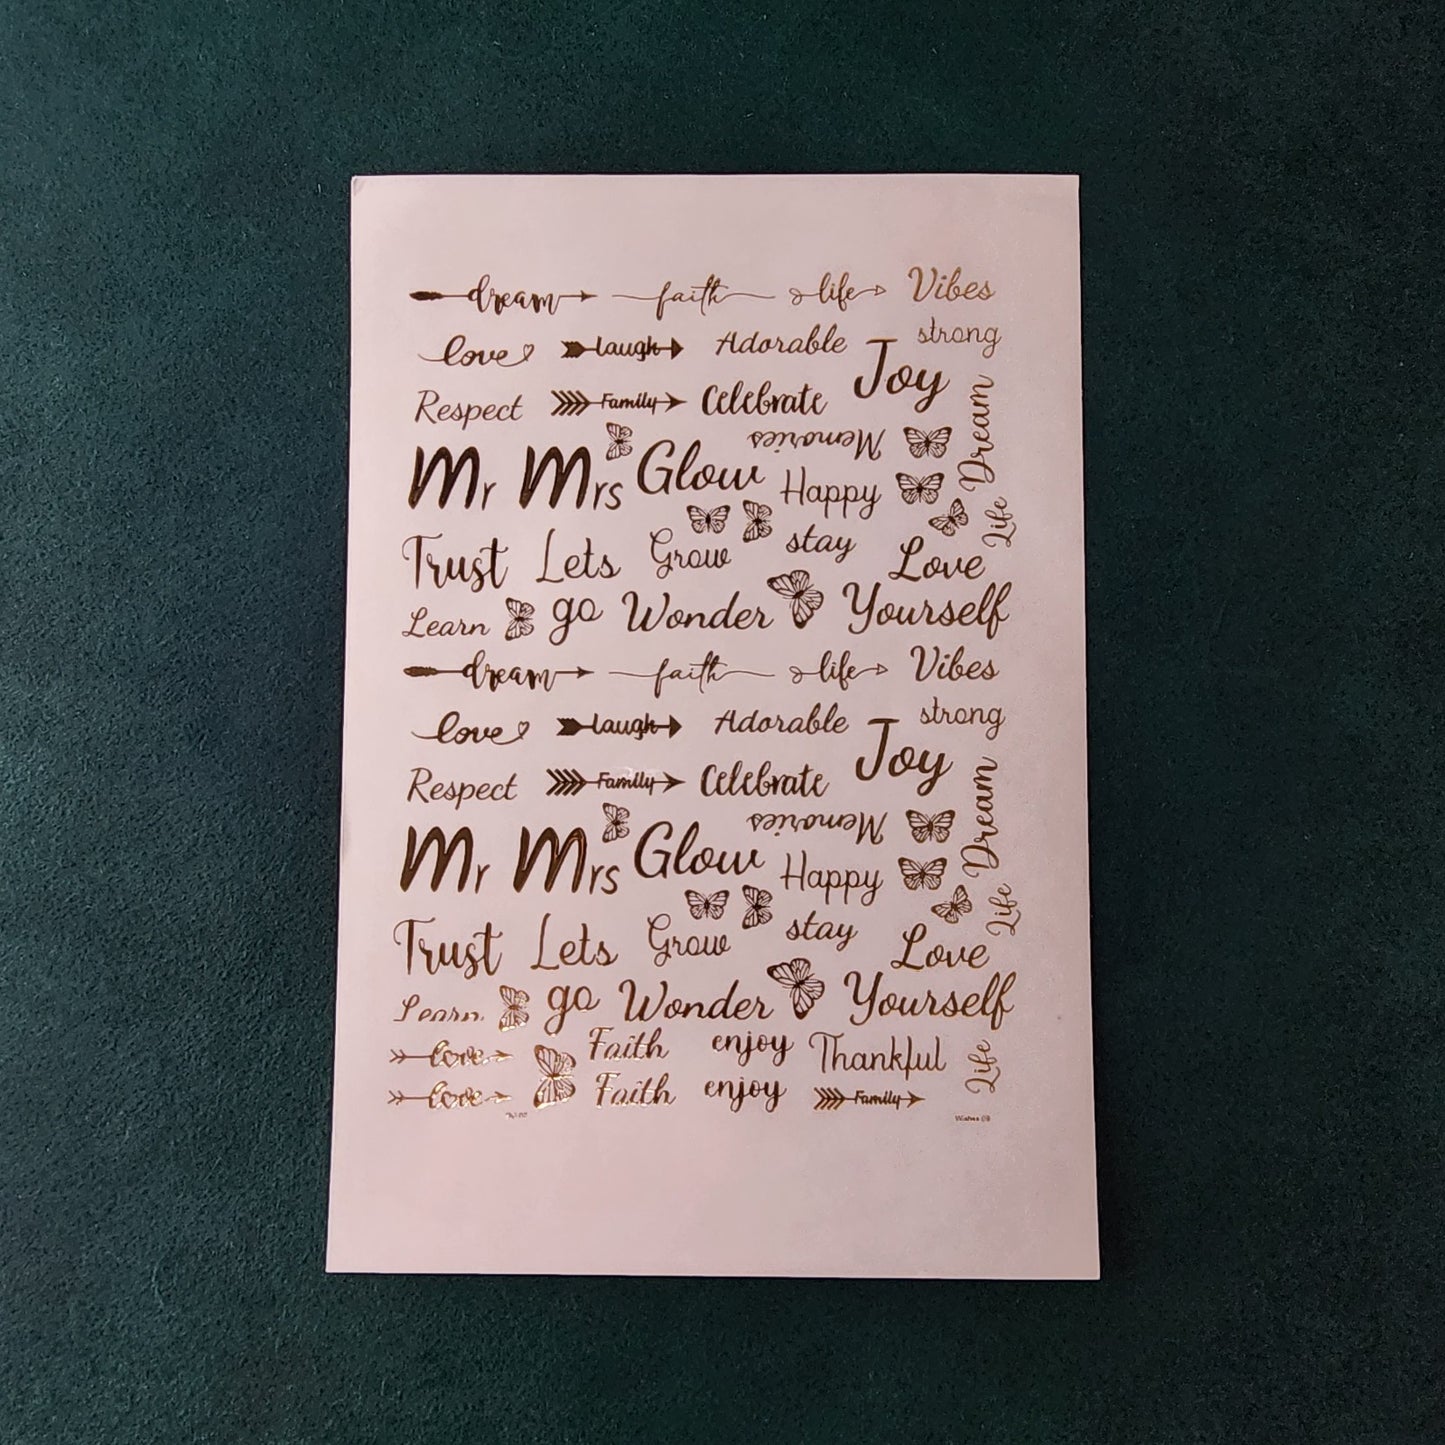 dream faith life Vibes
love laugh Adorable strong
Respect Family Celebrate Joy
Memories
Dream
Mr Mrs Glow Happy
Life
Trust Lets Grow stay Love
Learn go Wonder Yourself
dream faith life Vibes
love laugh Adorable strong
Respect Family Celebrate Joy
Memories
Dream
Mr Mrs Glow Happy
Life
Trust Lets Grow stay Love
Learn go Wonder Yourself
love Faith enjoy Thankful Life
love Faith enjoy Family
Wishes